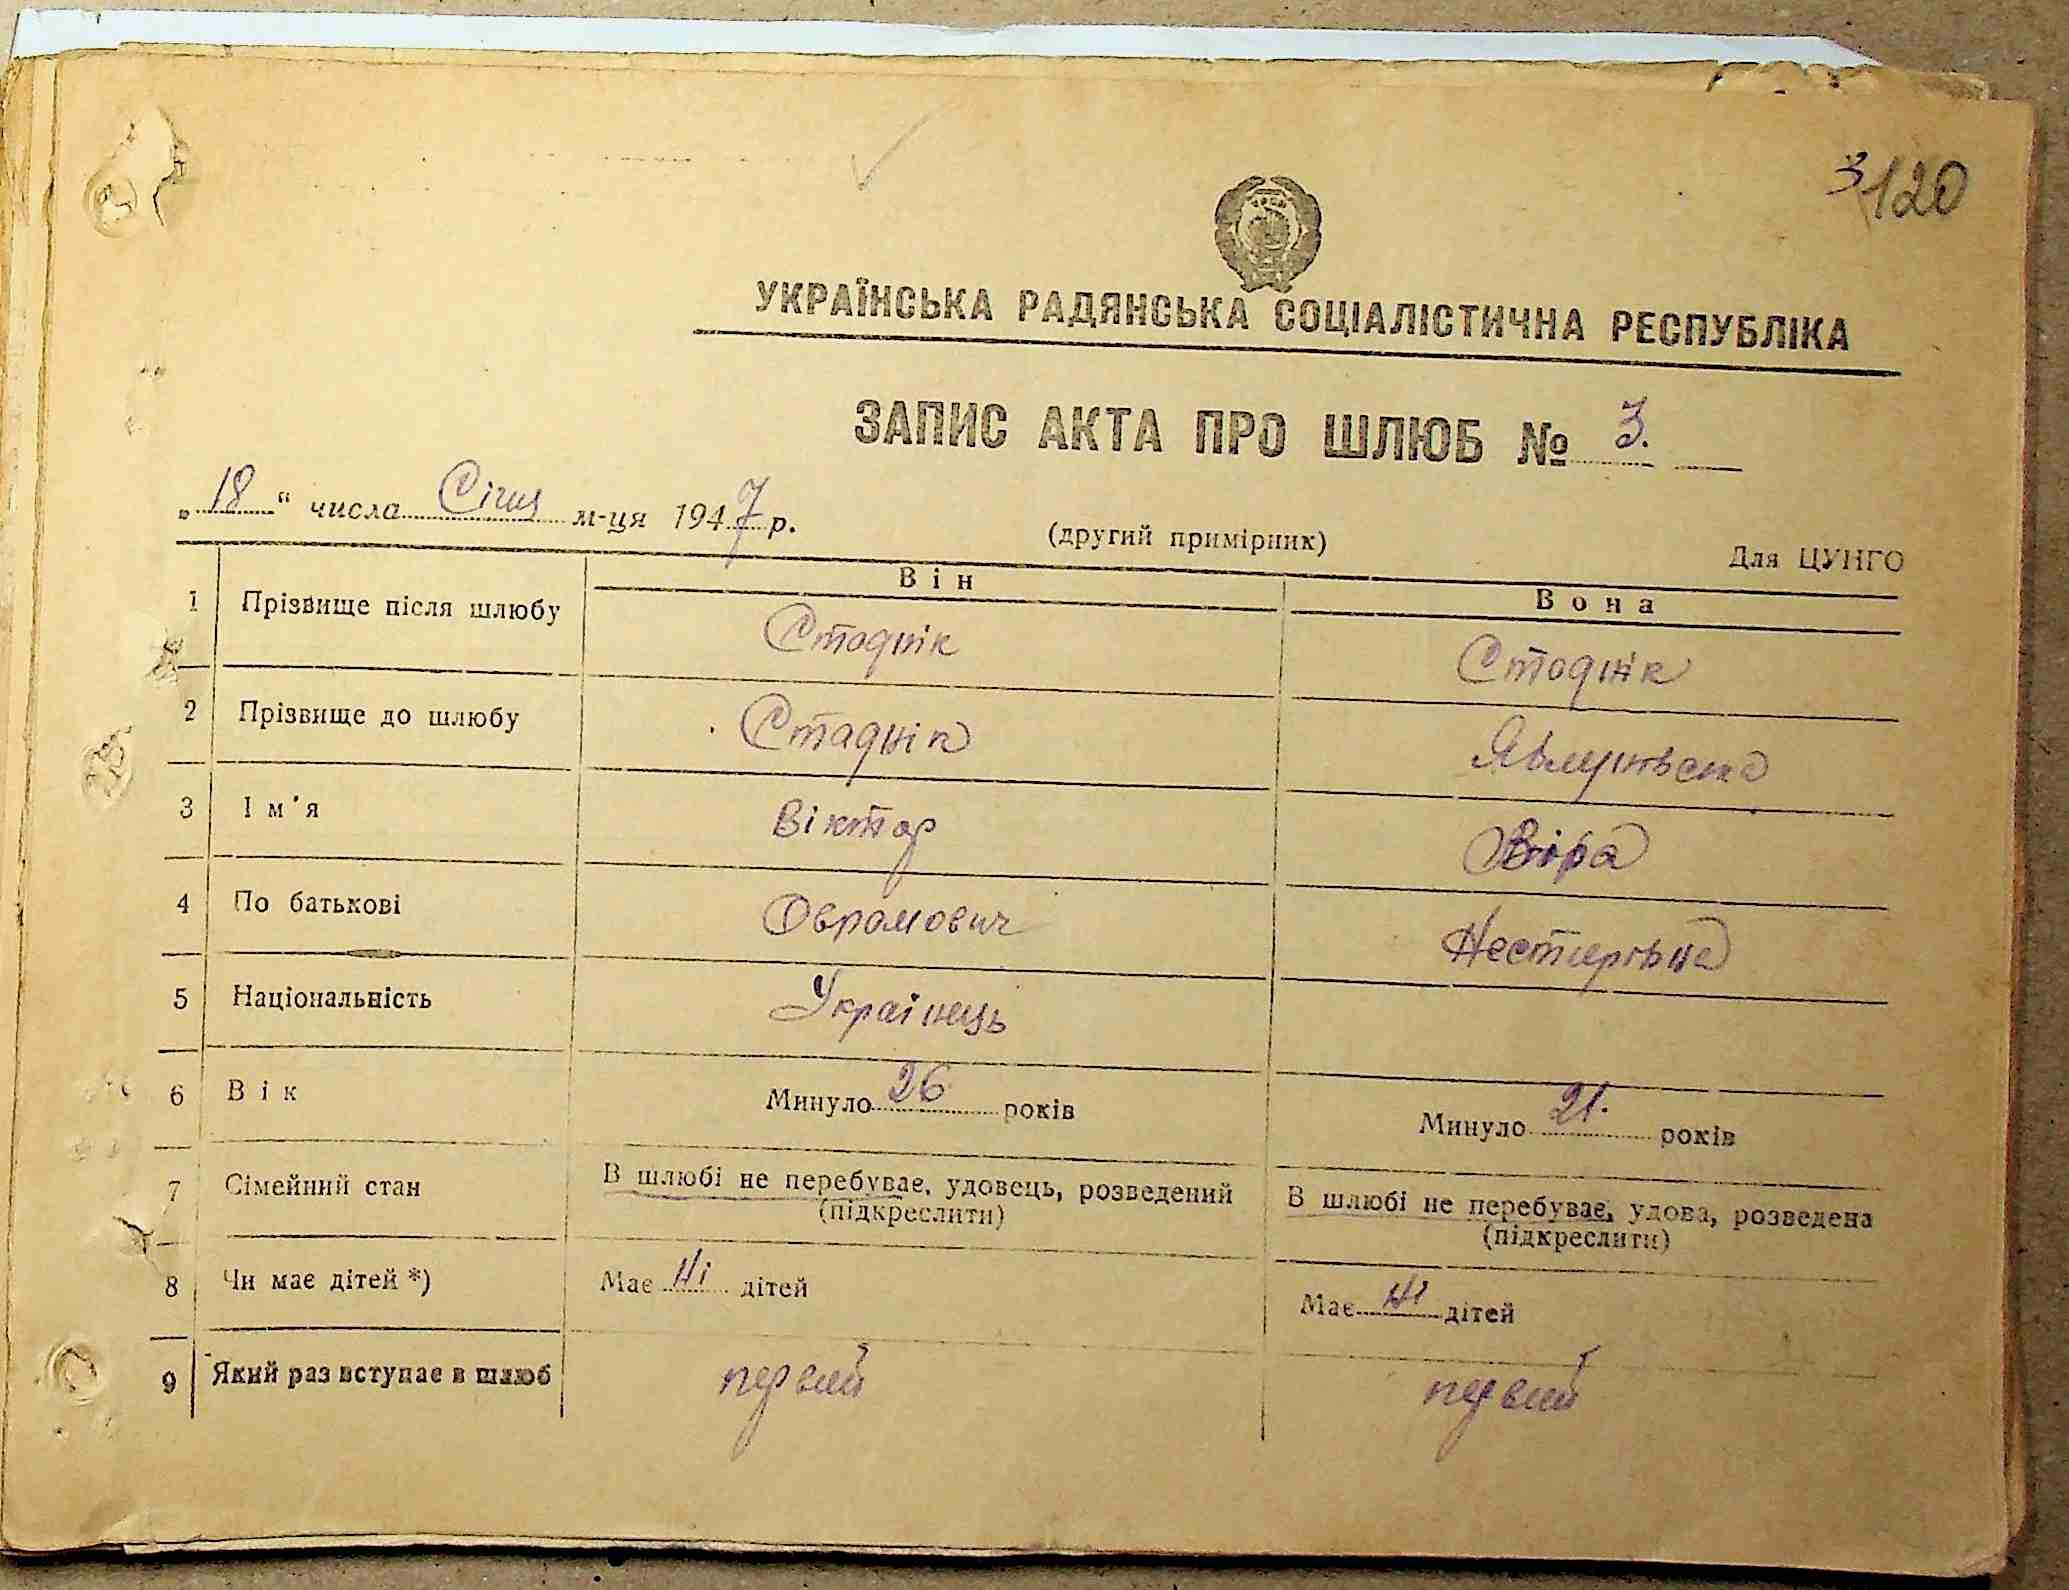 3 120
УКРАЇНСЬКА РАДЯНСЬКА СОЦІАЛІСТИЧНА РЕСПУБЛІКА
ЗАПИС АКТА ПРО ШЛЮБ № 3.
„18“ числа Січня м-ця 1947 р.
(другий примірник)
Для ЦУНГО
Він Вона
1 Прізвище після шлюбу Стоднік Стоднік
2 Прізвище до шлюбу Стаднік
3 Ім'я Віктор Віра
4 По батькові Оврамович Нестерівна
5 Національність Українець
6 Вік Минуло 26 років Минуло 21. років
7 Сімейний стан В шлюбі не перебуває, удовець, розведений В шлюбі не перебуває, удова, розведена
(підкреслити) (підкреслити)
8 Чи має дітей *) Має Ні дітей Має Ні дітей
9 Який раз вступає в шлюб первий первий